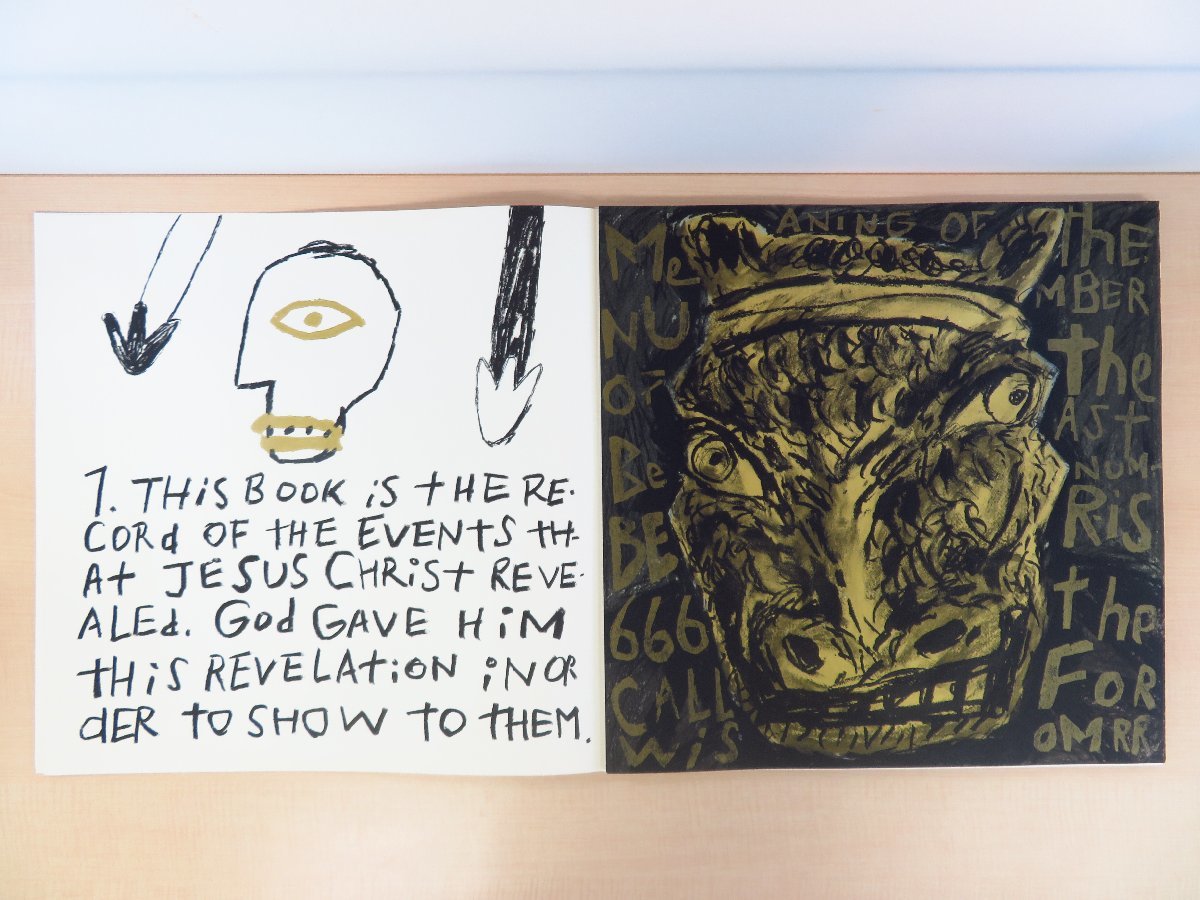 1. THiS BOOK iS tHE RE-
CORd OF tHE EVENTS tH-
At JESUS CHRiSt REVE-
ALEd. God GAVE HiM
tHiS REVELAtiON iN OR
dER tO SHOW tO tHEM.
Me ANING OF thE
NU MBER
OF the
Be ASt
BE NUM-
BE RiS
666 the
CALL FOR
WiS OM RR